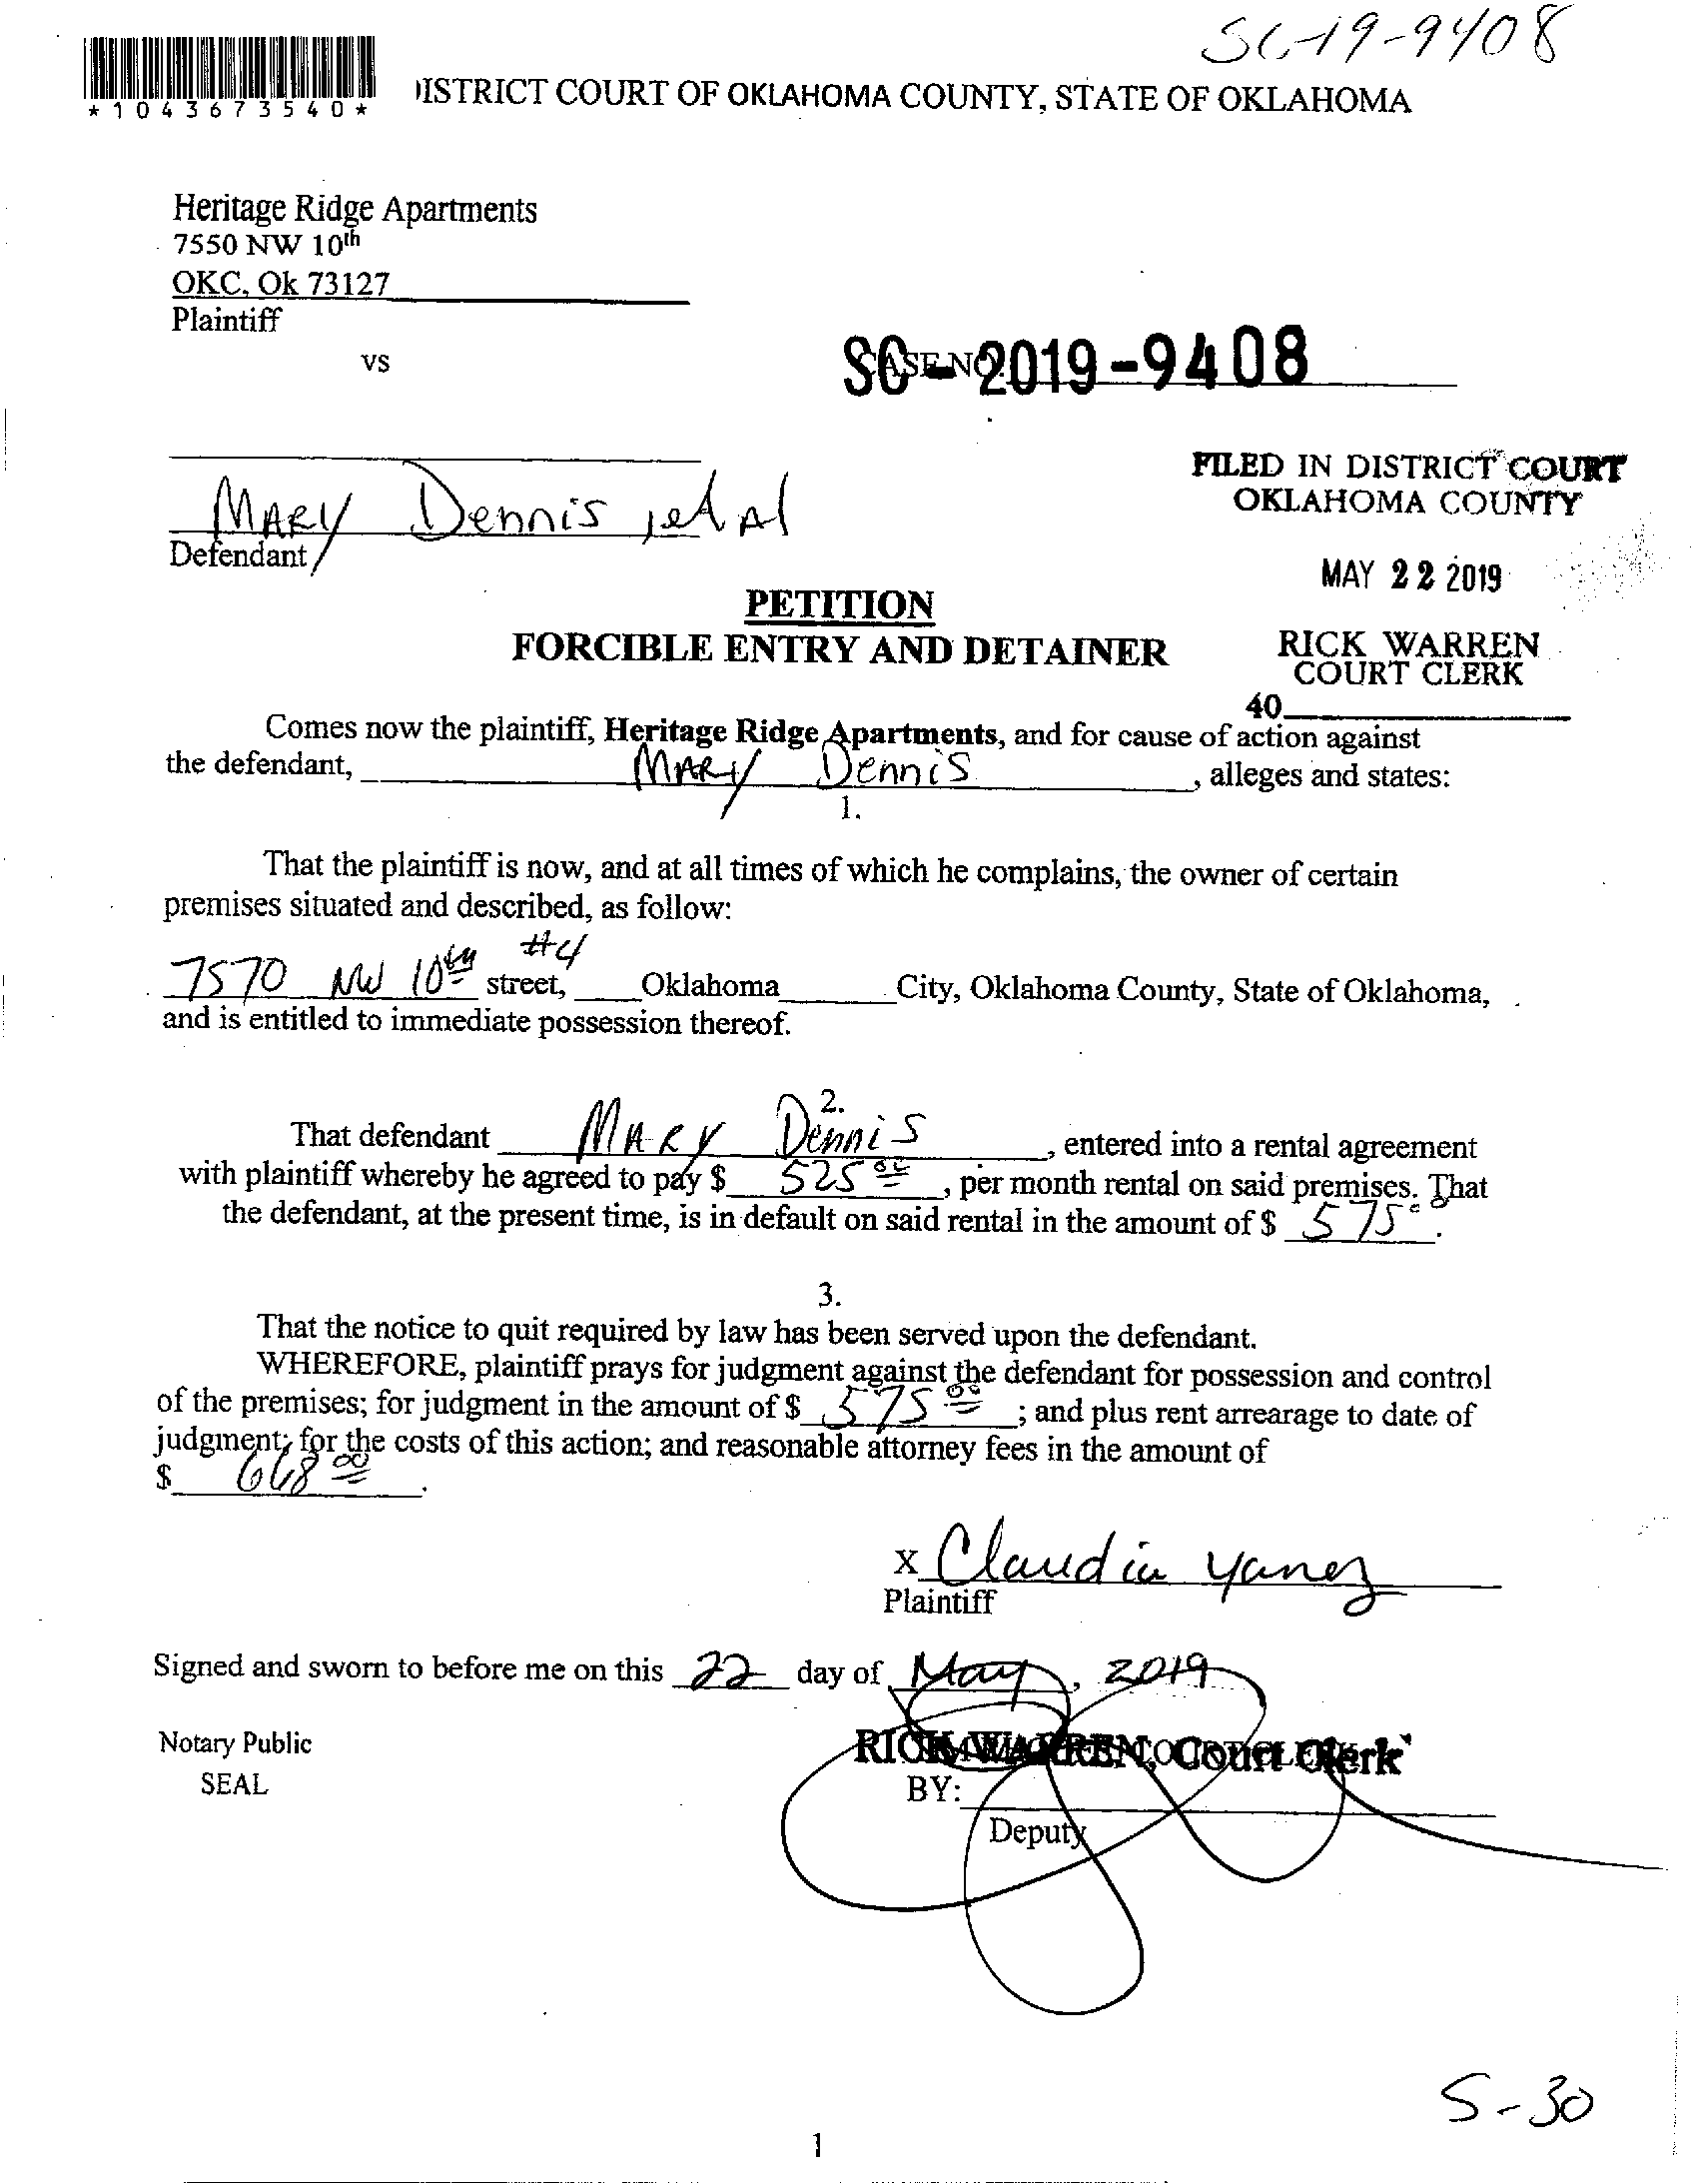 SC-19-9408
*1043673540*
DISTRICT COURT OF OKLAHOMA COUNTY, STATE OF OKLAHOMA
Heritage Ridge Apartments
7550 NW 10th
OKC, Ok 73127
Plaintiff
vs
CASE NO.
SC-2019-9408
MARY Dennis, et Al
Defendant
FILED IN DISTRICT COURT
OKLAHOMA COUNTY
MAY 22 2019
RICK WARREN
COURT CLERK
40
PETITION
FORCIBLE ENTRY AND DETAINER
Comes now the plaintiff, Heritage Ridge Apartments, and for cause of action against
the defendant, MARY Dennis, alleges and states:
1.
That the plaintiff is now, and at all times of which he complains, the owner of certain
premises situated and described, as follow:
7570 NW 10th street, #4 Oklahoma City, Oklahoma County, State of Oklahoma,
and is entitled to immediate possession thereof.
2.
That defendant MARY Dennis, entered into a rental agreement
with plaintiff whereby he agreed to pay $ 525 00, per month rental on said premises. That
the defendant, at the present time, is in default on said rental in the amount of $ 575 00.
3.
That the notice to quit required by law has been served upon the defendant.
WHEREFORE, plaintiff prays for judgment against the defendant for possession and control
of the premises; for judgment in the amount of $ 575 00; and plus rent arrearage to date of
judgment; for the costs of this action; and reasonable attorney fees in the amount of
$ 668 00.
x Claudia Yanez
Plaintiff
Signed and sworn to before me on this 22 day of May, 2019
Notary Public
SEAL
RICK WARREN, Court Clerk
BY:
Deputy
5-30
1